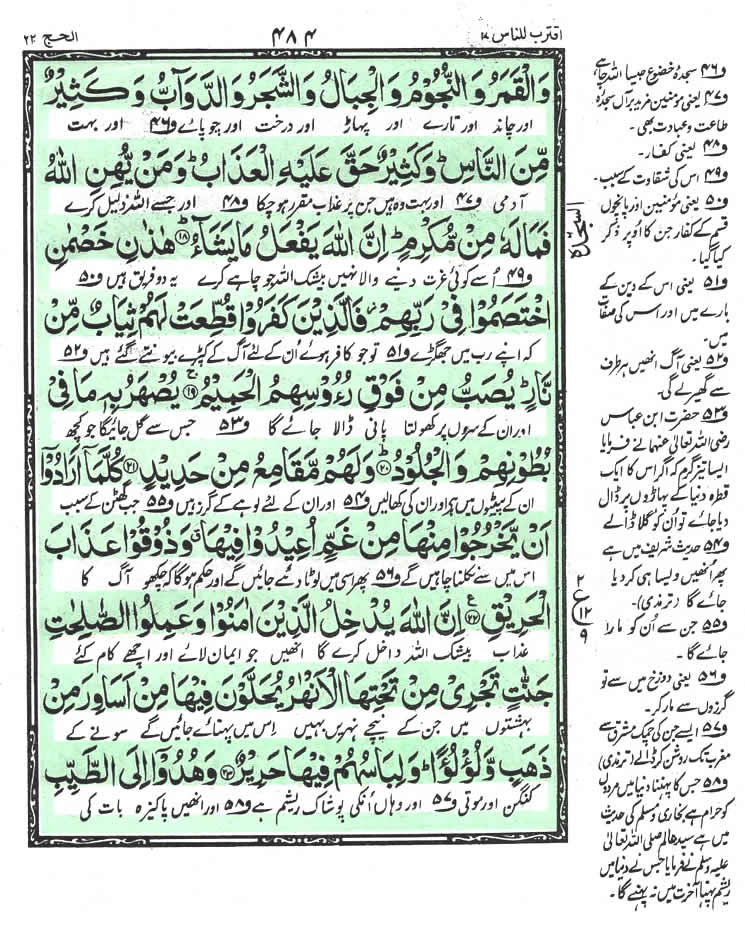 اقترب للناس ۱۷
۴۸۴
الحج ۲۲
وَالْقَمَرُ وَالنُّجُوْمُ وَالْجِبَالُ وَالشَّجَرُ وَالدَّوَآبُّ وَكَثِيْرٌ
اور چاند اور تارے اور پہاڑ اور درخت اور چوپائے و۴۶ اور بہت
مِّنَ النَّاسِ ؕ وَكَثِيْرٌ حَقَّ عَلَيْهِ الْعَذَابُ ؕ وَمَنْ يُّهِنِ اللّٰهُ
آدمی و۴۷ اور بہت وہ ہیں جن پر عذاب مقرر ہو چکا و۴۸ اور جسے اللہ ذلیل کرے
فَمَا لَهٗ مِنْ مُّكْرِمٍ ؕ اِنَّ اللّٰهَ يَفْعَلُ مَا يَشَآءُ ۩﴿۱۸﴾ هٰذٰنِ خَصْمٰنِ
و۴۹ اُسے کوئی عزت دینے والا نہیں بیشک اللہ جو چاہے کرے یہ دو فریق ہیں و۵۰
اخْتَصَمُوْا فِیْ رَبِّهِمْ ؗ فَالَّذِيْنَ كَفَرُوْا قُطِّعَتْ لَهُمْ ثِيَابٌ مِّنْ
کہ اپنے رب میں جھگڑے و۵۱ تو جو کافر ہوئے اُن کے لئے آگ کے کپڑے بیونتے گئے ہیں و۵۲
نَّارٍ ؕ يُصَبُّ مِنْ فَوْقِ رُءُوْسِهِمُ الْحَمِيْمُ ﴿۱۹﴾ يُصْهَرُ بِهٖ مَا فِیْ
اور ان کے سروں پر کھولتا پانی ڈالا جائے گا و۵۳ جس سے گل جائیگا جو کچھ
بُطُوْنِهِمْ وَالْجُلُوْدُ ﴿۲۰﴾ وَلَهُمْ مَّقَامِعُ مِنْ حَدِيْدٍ ﴿۲۱﴾ كُلَّمَاۤ اَرَادُوْۤا
ان کے پیٹوں میں ہے اور ان کی کھالیں و۵۴ اور ان کے لئے لوہے کے گرز ہیں و۵۵ جب گھٹن کے سبب
اَنْ يَّخْرُجُوْا مِنْهَا مِنْ غَمٍّ اُعِيْدُوْا فِيْهَا ۗ وَذُوْقُوْا عَذَابَ
اس میں سے نکلنا چاہیں گے و۵۶ پھر اسی میں لوٹا دئے جائیں گے اور حکم ہوگا کہ چکھو آگ کا
الْحَرِيْقِ ﴿۲۲﴾ اِنَّ اللّٰهَ يُدْخِلُ الَّذِيْنَ اٰمَنُوْا وَعَمِلُوا الصّٰلِحٰتِ
عذاب بیشک اللہ داخل کرے گا انھیں جو ایمان لائے اور اچھے کام کئے
جَنّٰتٍ تَجْرِیْ مِنْ تَحْتِهَا الْاَنْهٰرُ يُحَلَّوْنَ فِيْهَا مِنْ اَسَاوِرَ مِنْ
بہشتوں میں جن کے نیچے نہریں بہیں اس میں پہنائے جائیں گے سونے کے
ذَهَبٍ وَّلُؤْلُؤًا ؕ وَلِبَاسُهُمْ فِيْهَا حَرِيْرٌ ﴿۲۳﴾ وَهُدُوْۤا اِلَی الطَّيِّبِ
کنگن اور موتی و۵۷ اور وہاں اُنکی پوشاک ریشم ہے و۵۸ اور انھیں پاکیزہ بات کی
السجدة
۲
ع
۱۲
۹
و۴۶ سجدۂ خضوع جیسا اللہ چاہے
و۴۷ یعنی مؤمنین مزید برآں سجدۂ
طاعت و عبادت بھی۔
و۴۸ یعنی کفار۔
و۴۹ اس کی شقاوت کے سبب۔
و۵۰ یعنی مؤمنین اور پانچوں
قسم کے کفار جن کا اُوپر ذکر
کیا گیا۔
و۵۱ یعنی اس کے دین کے
بارے میں اور اس کی صفات
میں۔
و۵۲ یعنی آگ انھیں ہر طرف
سے گھیر لے گی۔
و۵۳ حضرت ابن عباس
رضی اللہ تعالیٰ عنہما نے فرمایا
ایسا تیز گرم کہ اگر اس کا ایک
قطرہ دنیا کے پہاڑوں پر ڈال
دیا جائے تو ان کو گلا ڈالے
و۵۴ حدیث شریف میں ہے
پھر اُنھیں ویسا ہی کر دیا
جائے گا (ترمذی)۔
و۵۵ جن سے اُن کو مارا
جائے گا۔
و۵۶ یعنی دوزخ میں سے تو
گرزوں سے مار کر۔
و۵۷ ایسے جن کی چمک مشرق سے
مغرب تک روشن کر ڈالے (ترمذی)
و۵۸ جس کا پہننا دنیا میں مردوں
کو حرام ہے بخاری و مسلم کی حدیث
میں ہے سید عالم صلی اللہ تعالیٰ
علیہ وسلم نے فرمایا جس نے دنیا میں
ریشم پہنا آخرت میں نہ پہنے گا۔